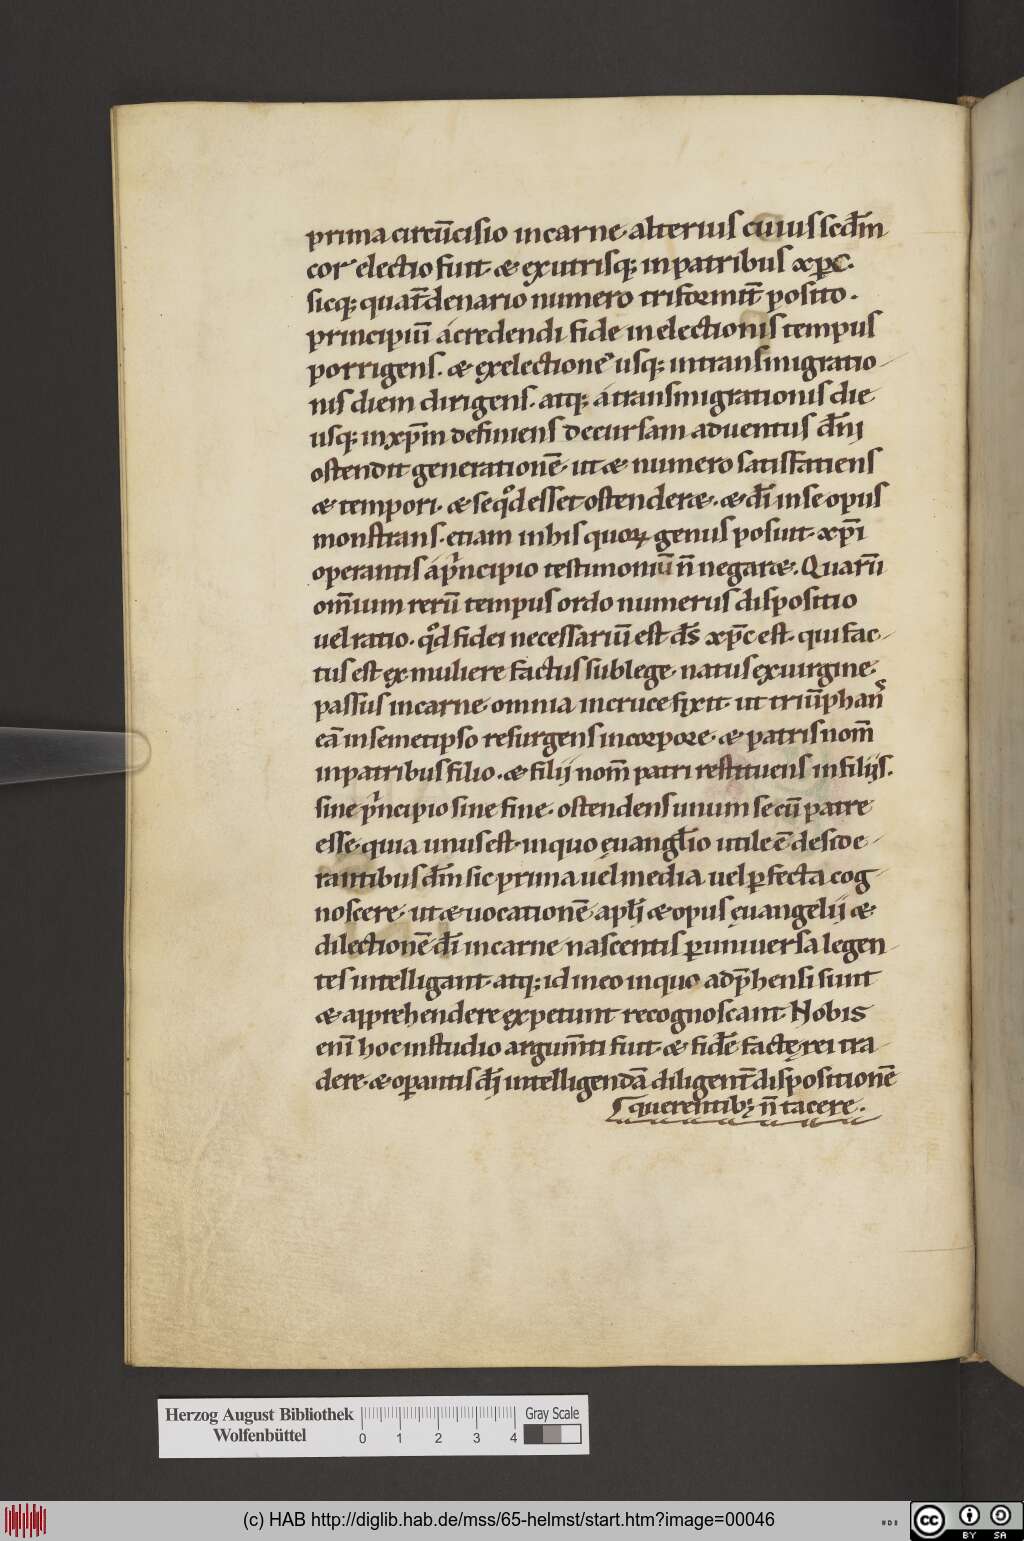 prima circū̄cisio in carne· alterius cuius scdm̄
cor electio fuit· & ex utrisq; in patribus xp̄c·
sicq; quat̄denario numero triformit̄ posito·
principiū̄ a credendi fide in electionis tempus
porrigens· & ex electione usq; in transmigratio
nis diem dirigens· atq; a transmigrationis die
usq; in xp̄m definiens decursam aduentus dn̄i
ostendit generationē· ut & numero satisfatiens
& tempori· & se qd̄ esset ostender&· & dī in se opus
monstrans· etiam in his quoꝝ genus posuit· xp̄i
operantis a principio testimoniū n̄ negar&· Quarū
om̄ium rerū tempus ordo numerus dispositio
uel ratio· qd̄ fidei necessariū est ds̄ xp̄c est· qui fac
tus est ex muliere factus sub lege· natus ex uirgine·
passus in carne· omnia in cruce fixit· ut triūphans̄
ea in semetipso resurgens in corpore· & patris nom̄
in patribus filio· & filij nom̄ patri restituens in filijs·
sine principio sine fine· ostendens unum se cū patre
esse· quia unus est· in quo ęuanglio utile ē deside
rantibus dm̄ sic prima uel media uel ꝑfecta cog
noscere· ut & uocationē apl̄i & opus ęuangelij &
dilectionē dī in carne nascentis ꝑ uniuersa legen
tes intelligant· atq; id in eo in quo adp̄hensi sunt
& apprehendere expetunt recognoscant· Nobis
enī hoc in studio argum̄ti fuit· & fidē factę rei tra
dere· & oꝑantis dī intelligendā diligent̄ dispositionē
querentib; n̄ tacere·
Herzog August Bibliothek
Wolfenbüttel
0 1 2 3 4
Gray Scale
(c) HAB http://diglib.hab.de/mss/65-helmst/start.htm?image=00046
cc BY SA